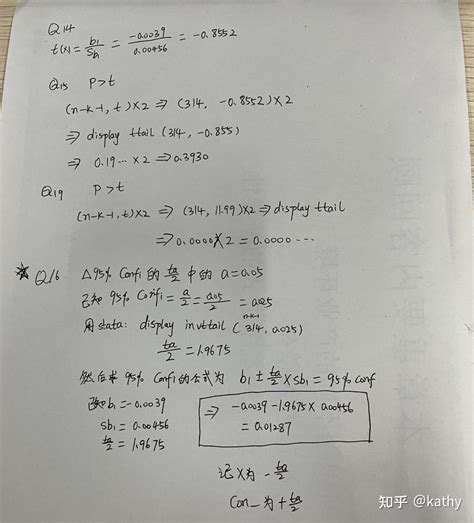 Q14
t(x)= b1/Sb1 = -0.0039/0.00456 = -0.8552
Q15 P>t
(n-k-1, t)×2 => (314, -0.8552)×2
=> display ttail (314, -0.855)
=> 0.19... ×2 => 0.3930
Q19 P>t
(n-k-1, t)×2 => (314, 11.99)×2 => display ttail
=> 0.0000×2 = 0.0000 ...
Q16. △95% Confi的 ta/2 中的 a=0.05
已知 95% Confi = a/2 = 0.05/2 = 0.025
n-k-1
用stata: display invttail (314, 0.025)
ta/2 = 1.9675
然后求 95% Confi的公式为 b1 ± ta/2 × Sb1 = 95% conf
已知 b1 = -0.0039
Sb1 = 0.00456
ta/2 = 1.9675
=> -0.0039 - 1.9675 × 0.00456
= 0.01287
记X为 - ta/2
Con_为 + ta/2
知乎 @kathy